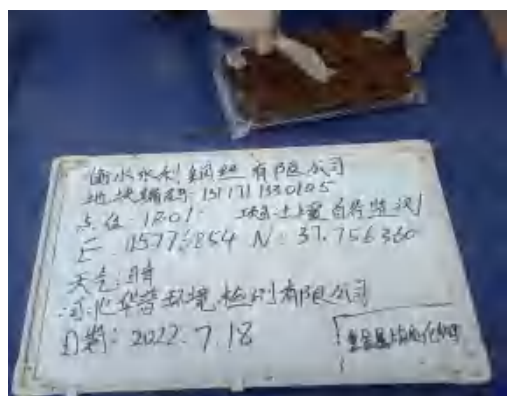 衡水永利钢丝有限公司
地块编码: 1311711330105
点位: 1B01 土壤自行监测
E: 115.776854 N: 37.756360
天气: 晴
河北华普环境检测有限公司
日期: 2022.7.18
重金属